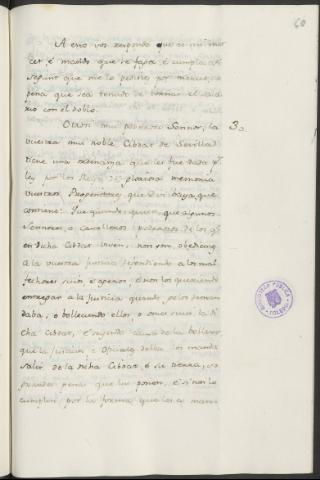 60
A esto vos respondo que es mi mer
ced, é mando que se faga, é cumpla así
segunt que me lo pedides por merced, so
pena que sea tenudo de tornar el sala
rio con el doblo.
3a
Otrosi mui poderoso Sennor, la
vuestra mui noble Cibdat de Sevilla
tiene una ordenanza que les fue dada
ley por los Reyes de gloriosa memoria
vuestros Progenitores, que Dios haya, que
contiene: Que quando quier que algunos
Sennores, o cavalleros poderosos de los que
en dicha Cibdat viven, non son obedientes
a la vuestra justicia defendiendo a los mal
fechores suios, é agenos é non los queriendo
entregar a la Justicia quando gelos deman
daba, o bolleciendo ellos, o otros suios la di
cha Cibdat, é seyendo causa de la bollecer
que la Justicia, e Oficiales della los manda
salir de la dicha Cibdat, é su tierra, so
grandes penas que les ponen, é si non lo
cumplen por la forma que les es manda
BIBLIOTECA PUBLICA
TOLEDO